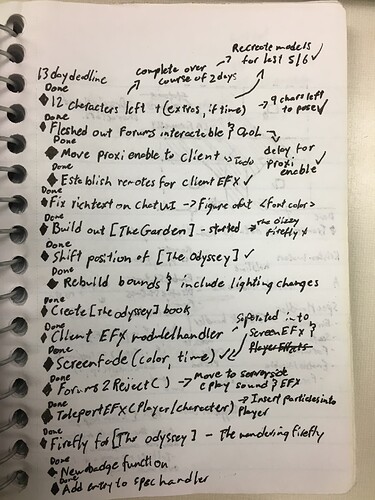 Recreate models
for last 5/6 ✓
13 day deadline
complete over
course of 2 days
Done
◆ 12 characters left + (extras, if time) → 9 chars left
to pose ✓
Done
◆ Fleshed out forums interactable & QoL
Done
◆ Move proxi enable to client ↳ Todo delay for
proxi
enable ✓
Done
◆ Establish remotes for client EFX ✓
Done
◆ Fix richtext on ChatUI → Figure out <font color>
Done
◆ Build out [The Garden] - started → The Dizzy
firefly
Done
◆ Shift position of [The odyssey] ✓
Done
◆ Rebuild bounds & include lighting changes
Done
◆ Create [The odyssey] book
Done
◆ Client EFX module/handler
Seperated into
ScreenEFX &
Player Effects
Done
◆ Screenfade (color, time) ✓
Done
◆ Forums2Reject() → move to serverside
play sound & EFX
Done
◆ TeleportEFX (Player/character) → Insert particles into
Player
Done
◆ Firefly for [The odyssey] - The wandering firefly
Done
◆ New badge function
Done
◆ Add entry to spec handler